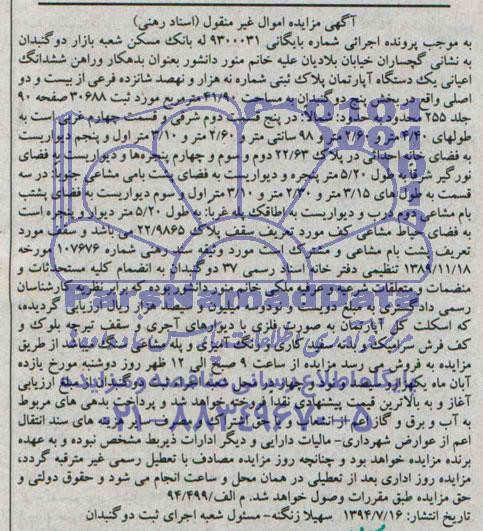 آگهی مزایده اموال غیر منقول (اسناد رهنی)
به موجب پرونده اجرائی شماره بایگانی ۹۳۰۰۰۳۱ له بانک مسکن شعبه بازار دوگنبدان
به نشانی گچساران خیابان بلادیان علیه خانم منور دانشور بعنوان بدهکار وراهن ششدانگ
اعیانی یک دستگاه آپارتمان پلاک ثبتی شماره نه هزار و نهصد شانزده فرعی از بیست و دو
اصلی واقع در بخش پنج دوگنبدان به مساحت ۴۱/۹۰ متر مربع مورد ثبت ۳۰۶۸۸ صفحه ۹۰
جلد ۲۵۵ محدود به حدود: شمالا: در پنج قسمت دوم شرقی و قسمت چهارم غربی است به
طولهای ۴/۴۰ متر و ۲/۶۰ متر و ۹۸ سانتی متر و ۲/۶۰ متر و ۳/۱۰ متر اول و پنجم دیواریست
به فضای خانه جدائی در پلاک ۲۲/۶۳ دوم و سوم و چهارم پنجره‌ها و دیواریست به فضای
نورگیر شرقا: به طول ۵/۲۰ متر پنجره و دیواریست به فضای پشت بامی مشاعی جنوبا: در سه
قسمت به طول های ۳/۱۵ متر و ۲/۳۰ متر و ۳/۱۰ متر اول و سوم دیواریست به فضای پشتب
بام مشاعی دوم درب و دیواریست به اطاقک پله غربا: به طول ۵/۲۰ متر دیوار و پنجره است
به فضای حیاط مشاعی کف مورد تعریف سقف پلاک ۲۲/۹۸۶۵ می باشد و سقف مورد
تعریف پشت بام مشاعی و مشترک است مورد وثیقه سند رهنی شماره ۱۰۷۶۷۶ مورخه
۱۳۸۹/۱۱/۱۸ تنظیمی دفتر خانه اسناد رسمی ۳۷ دوگنبدان به انضمام کلیه مستحدثات و
منضمات و متعلقات شرعیه و عرفیه ملکی خانم منور دانشور بوده که برابر نظریه کارشناسان
رسمی دادگستری به مبلغ دویست و نودوسه میلیون و سیصد هزار ریال ارزیابی گردیده،
که اسکلت کل آپارتمان به صورت فلزی با دیوارهای آجری و سقف تیرچه بلوک و
کف فرش سرامیک و بدنه سفید کاری و رنگ آمیزی و پله مشاعی سنگ میباشد از طریق
مزایده به فروش می رسد مزایده از ساعت ۹ صبح الی ۱۲ ظهر روز دوشنبه مورخ یازده
آبان ماه یکهزار و سیصد و نود و چهار در محل شعبه اجرای ثبت دوگنبدان از مبلغ ارزیابی
آغاز و به بالاترین قیمت پیشنهادی نقدا فروخته خواهد شد و پرداخت بدهی های مربوط
به آب و برق و گاز اعم از انشعاب و یا حق اشتراک و مصرف و سایر هزینه های سند انتقال
اعم از عوارض شهرداری- مالیات دارایی و دیگر ادارات ذیربط مشخص نبوده و به عهده
برنده مزایده خواهد بود و چنانچه روز مزایده مصادف با تعطیل رسمی غیر مترقبه گردد،
مزایده روز اداری بعد از تعطیلی در همان محل و ساعت انجام می شود و حقوق دولتی و
حق مزایده طبق مقررات وصول خواهد شد. م الف/۹۴/۴۹۹
تاریخ انتشار: ۱۳۹۴/۷/۱۶ سهیلا زنگنه- مسئول شعبه اجرای ثبت دوگنبدان
ParsNamadData
پایگاه اطلاع رسانی مناقصه و مزایده
۰۲۱-۸۸۳۴۹۶۷۰-۵